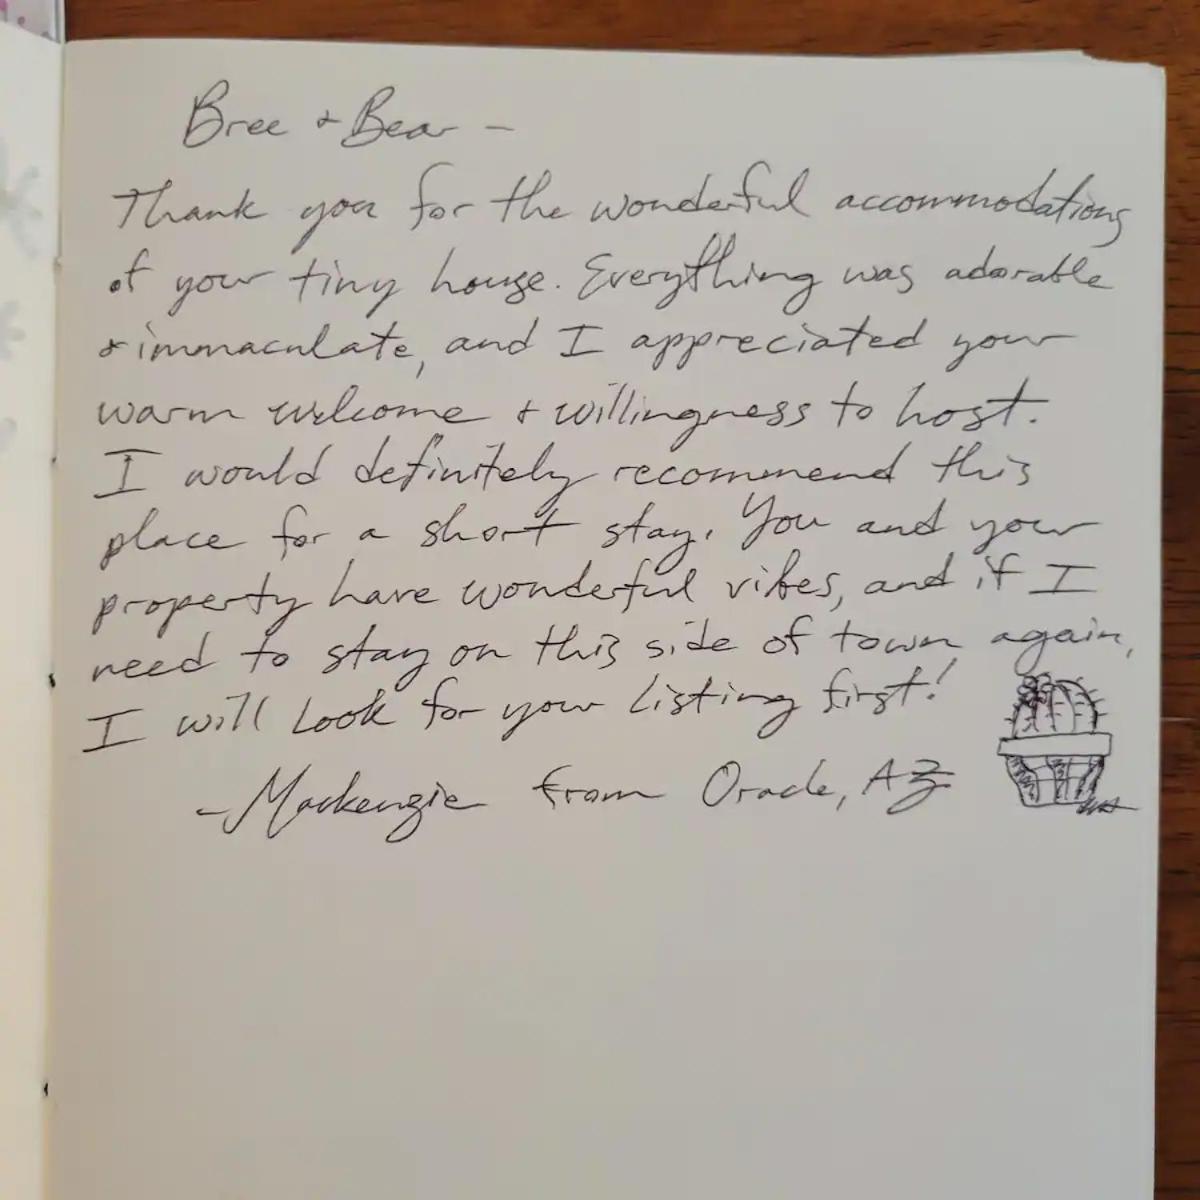 Bree + Bear -
Thank you for the wonderful accommodations
of your tiny house. Everything was adorable
+ immaculate, and I appreciated your
warm welcome + willingness to host.
I would definitely recommend this
place for a short stay. You and your
property have wonderful vibes, and if I
need to stay on this side of town again,
I will look for your listing first!
-Mackenzie from Oracle, AZ